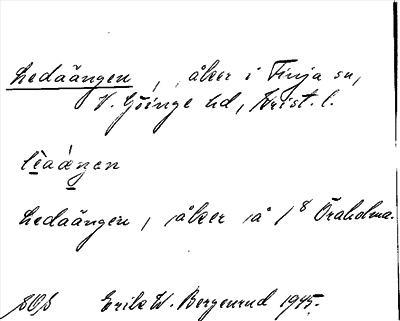 Ledaängen, åker i Finja sn,
V. Göinge hd, Krist. l.
lèaáŋen
Ledaängen, åker å 1/8 Öraholma.
Erik W. Bergenrud 1945.